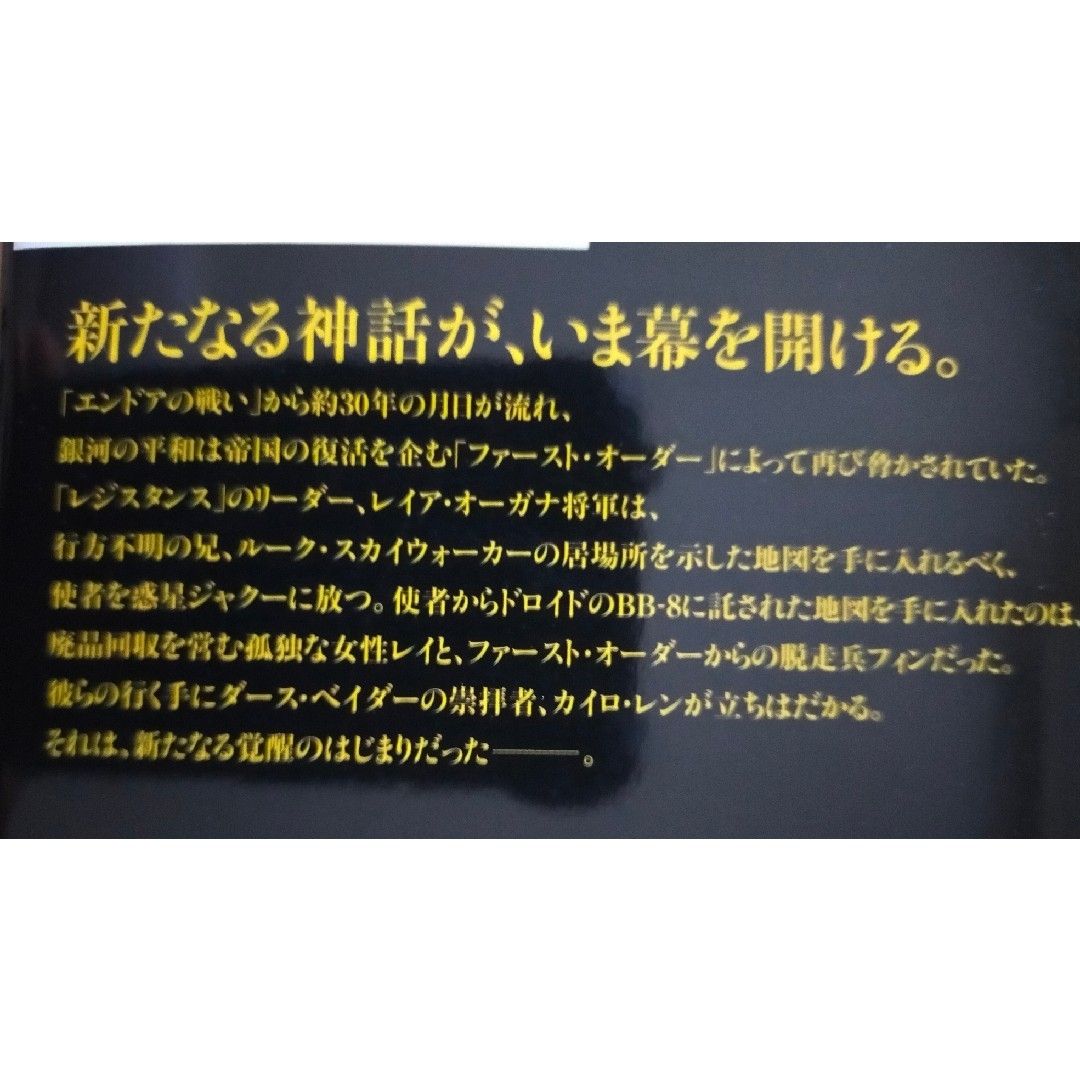 新たなる神話が、いま幕を開ける。
「エンドアの戦い」から約30年の月日が流れ、
銀河の平和は帝国の復活を企む「ファースト・オーダー」によって再び脅かされていた。
「レジスタンス」のリーダー、レイア・オーガナ将軍は、
行方不明の兄、ルーク・スカイウォーカーの居場所を示した地図を手に入れるべく、
使者を惑星ジャクーに放つ。使者からドロイドのBB-8に託された地図を手に入れたのは、
廃品回収を営む孤独な女性レイと、ファースト・オーダーからの脱走兵フィンだった。
彼らの行く手にダース・ベイダーの崇拝者、カイロ・レンが立ちはだかる。
それは、新たなる覚醒のはじまりだった――。